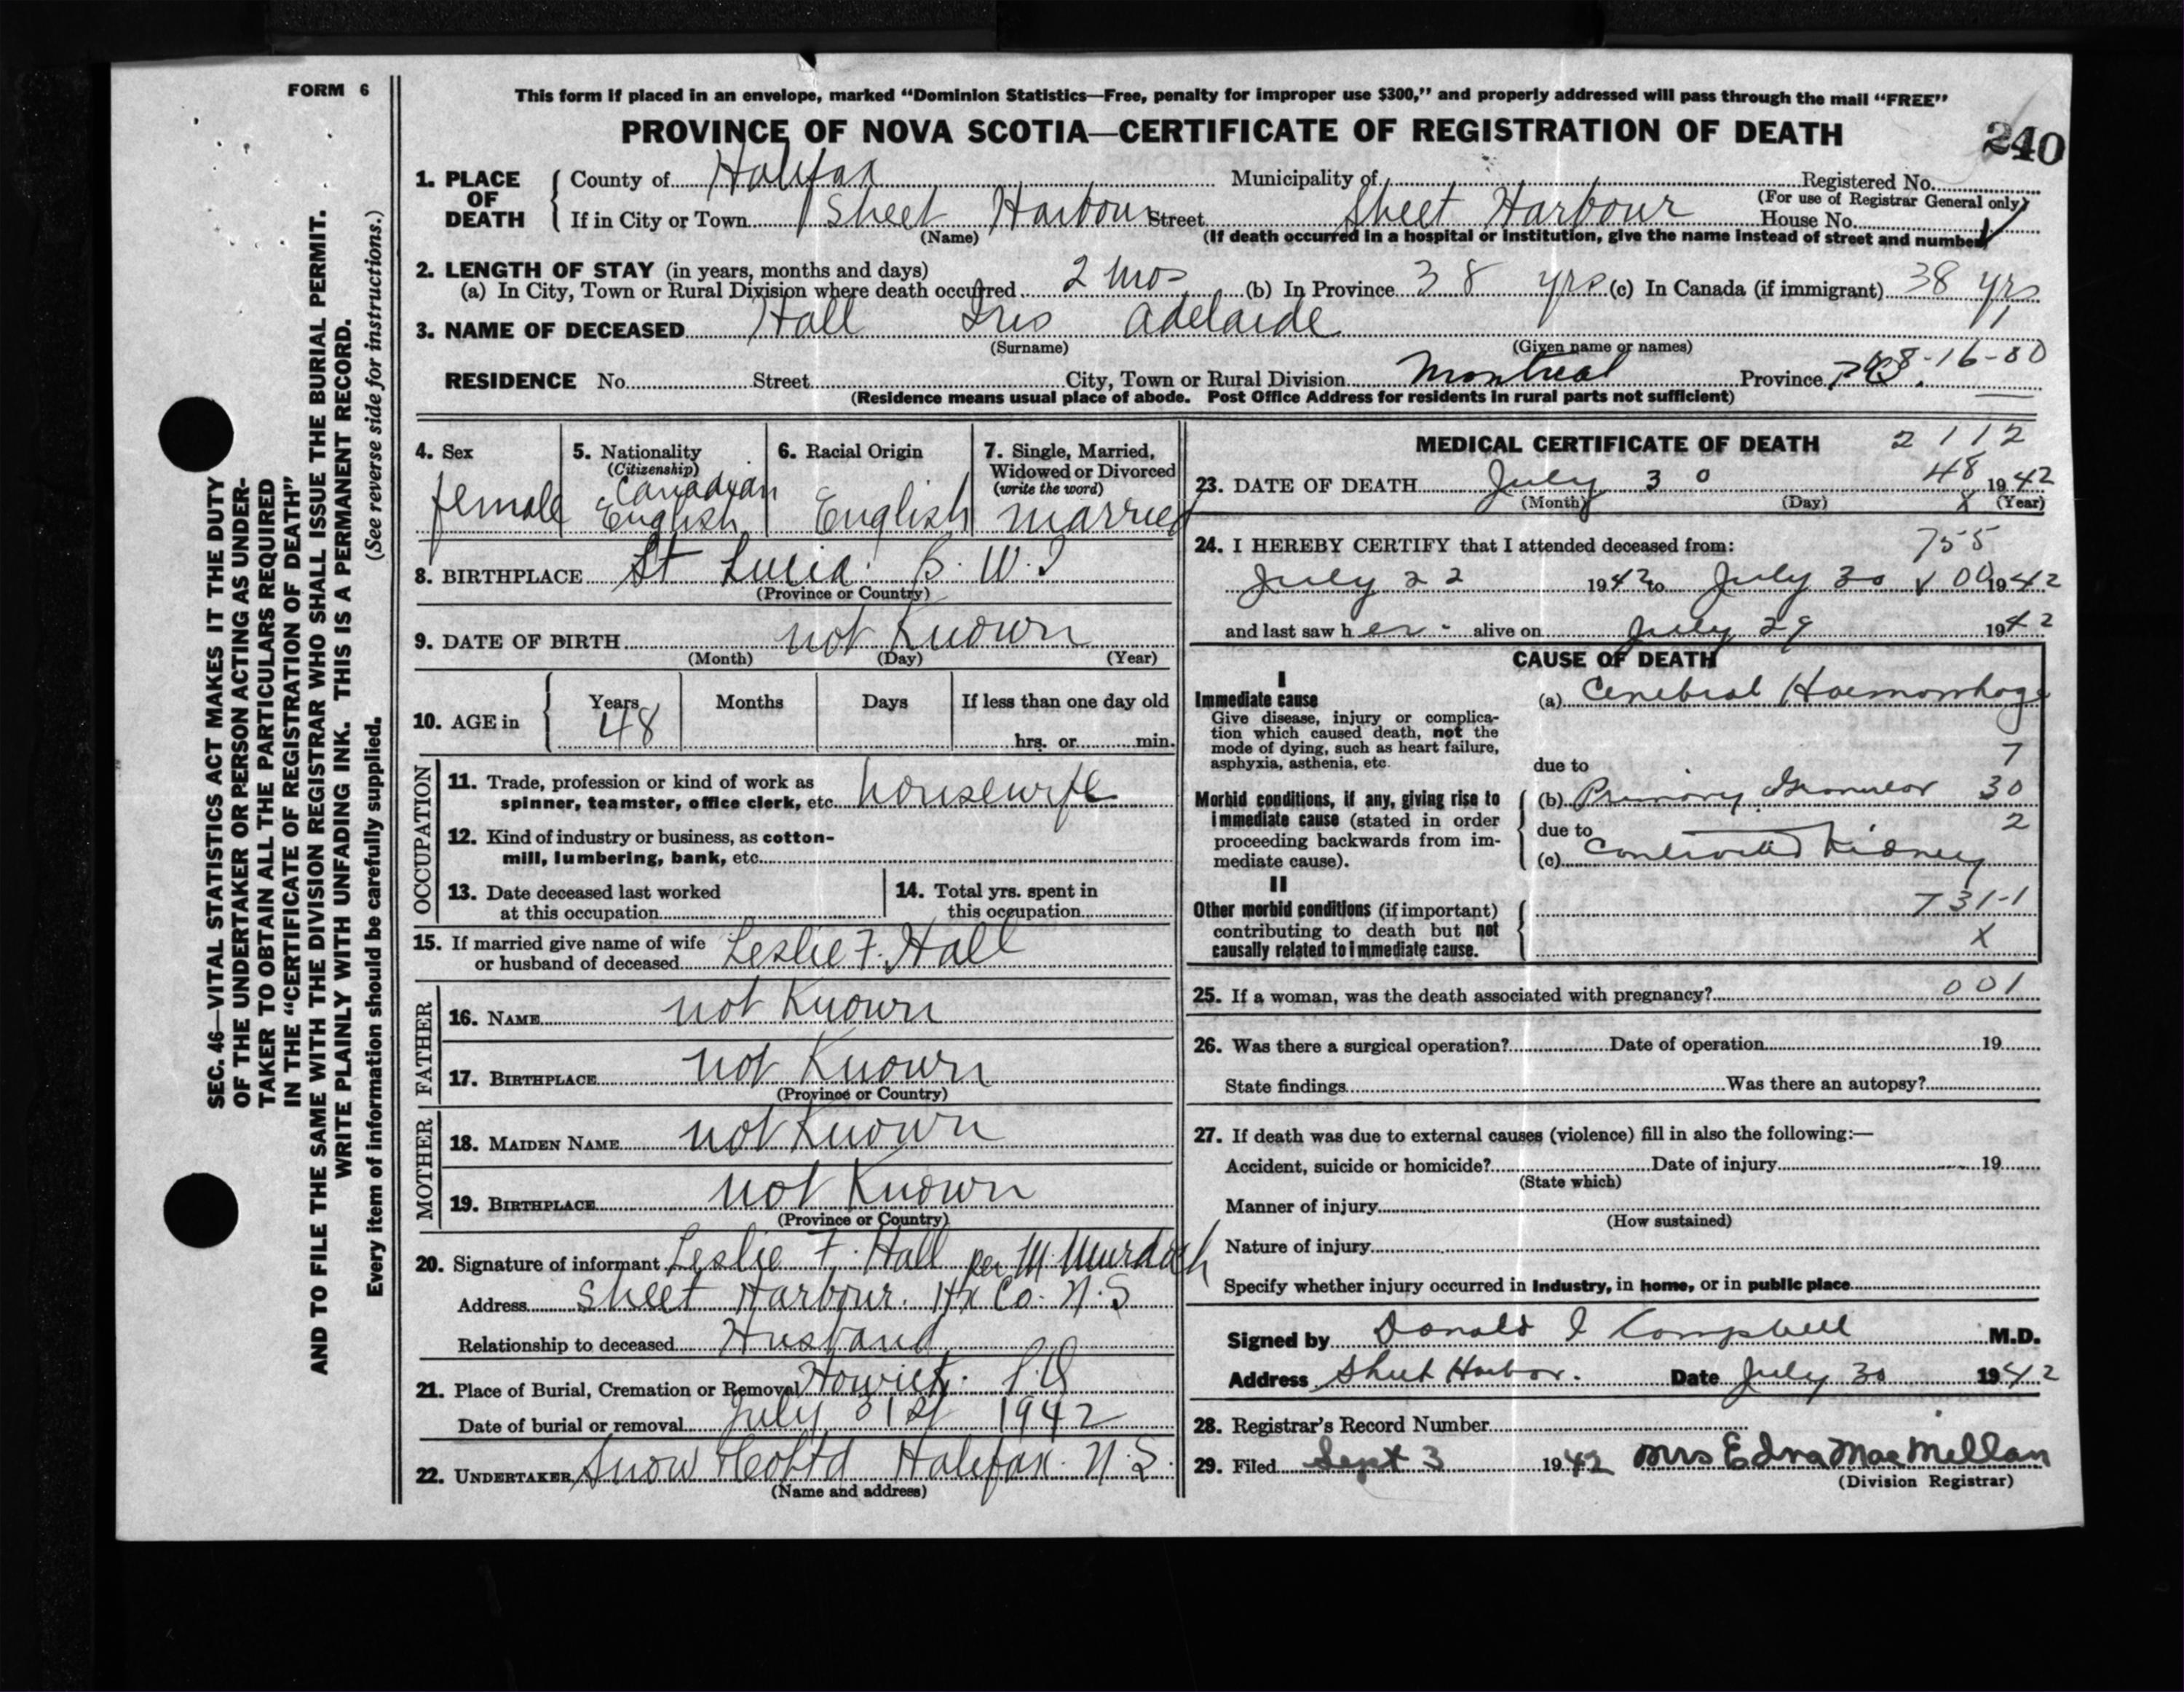 FORM 6
This form if placed in an envelope, marked "Dominion Statistics—Free, penalty for improper use $300," and properly addressed will pass through the mail "FREE"
PROVINCE OF NOVA SCOTIA—CERTIFICATE OF REGISTRATION OF DEATH
240
1. PLACE OF DEATH County of Halifax Municipality of Registered No.
(For use of Registrar General only)
If in City or Town Sheet Harbour Street Sheet Harbour House No.
(Name) (If death occurred in a hospital or institution, give the name instead of street and number)
2. LENGTH OF STAY (in years, months and days)
(a) In City, Town or Rural Division where death occurred 2 mos (b) In Province 38 yrs (c) In Canada (if immigrant) 38 yrs
3. NAME OF DECEASED Hall Iris Adelaide
(Surname) (Given name or names)
RESIDENCE No. Street City, Town or Rural Division Montreal Province 8-16-80
(Residence means usual place of abode. Post Office Address for residents in rural parts not sufficient)
4. Sex 5. Nationality 6. Racial Origin 7. Single, Married,
(Citizenship) Widowed or Divorced
(write the word)
female Canadian English English married
8. BIRTHPLACE St Lucia B.W.I
(Province or Country)
9. DATE OF BIRTH not Known
(Month) (Day) (Year)
10. AGE in Years Months Days If less than one day old
48 hrs. or min.
OCCUPATION
11. Trade, profession or kind of work as
spinner, teamster, office clerk, etc. housewife
12. Kind of industry or business, as cotton-
mill, lumbering, bank, etc.
13. Date deceased last worked 14. Total yrs. spent in
at this occupation this occupation
15. If married give name of wife
or husband of deceased Leslie F. Hall
FATHER
16. NAME not Known
17. BIRTHPLACE not Known
(Province or Country)
MOTHER
18. MAIDEN NAME not Known
19. BIRTHPLACE not Known
(Province or Country)
20. Signature of informant Leslie F. Hall per M. Murdoch
Address Sheet Harbour. Hx Co. N.S
Relationship to deceased Husband
21. Place of Burial, Cremation or Removal Howick P.Q
Date of burial or removal July 31st 1942
22. UNDERTAKER Snow & Co Ltd Halifax. N.S.
(Name and address)
MEDICAL CERTIFICATE OF DEATH 2112
23. DATE OF DEATH July 30 48 1942
(Month) (Day) X (Year)
24. I HEREBY CERTIFY that I attended deceased from: 755
July 22 1942 to July 30 X 00 1942
and last saw her alive on July 29 1942
CAUSE OF DEATH
I
Immediate cause (a) Cerebral Haemorrhage
Give disease, injury or complica-
tion which caused death, not the
mode of dying, such as heart failure, 7
asphyxia, asthenia, etc. due to
Morbid conditions, if any, giving rise to (b) Primary Granular 30
immediate cause (stated in order due to 2
proceeding backwards from im-
mediate cause). (c) Contracted Kidney
II
Other morbid conditions (if important) 731-1
contributing to death but not X
causally related to immediate cause.
25. If a woman, was the death associated with pregnancy? 001
26. Was there a surgical operation? Date of operation 19
State findings Was there an autopsy?
27. If death was due to external causes (violence) fill in also the following:—
Accident, suicide or homicide? Date of injury 19
(State which)
Manner of injury
(How sustained)
Nature of injury
Specify whether injury occurred in industry, in home, or in public place
Signed by Donald I Campbell M.D.
Address Sheet Harbor. Date July 30 1942
28. Registrar's Record Number
29. Filed Sept 3 1942 Mrs Edna MacMillan
(Division Registrar)
SEC. 46—VITAL STATISTICS ACT MAKES IT THE DUTY
OF THE UNDERTAKER OR PERSON ACTING AS UNDER-
TAKER TO OBTAIN ALL THE PARTICULARS REQUIRED
IN THE "CERTIFICATE OF REGISTRATION OF DEATH"
AND TO FILE THE SAME WITH THE DIVISION REGISTRAR WHO SHALL ISSUE THE BURIAL PERMIT.
WRITE PLAINLY WITH UNFADING INK. THIS IS A PERMANENT RECORD.
Every item of information should be carefully supplied. (See reverse side for instructions.)